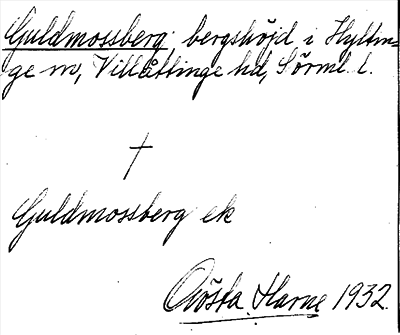 Guldmossberg bergshöjd i Hyltin=
ge sn, Villåttinge hd, Sörml. l.
†
Guldmossberg ek
Gösta Harne 1932.